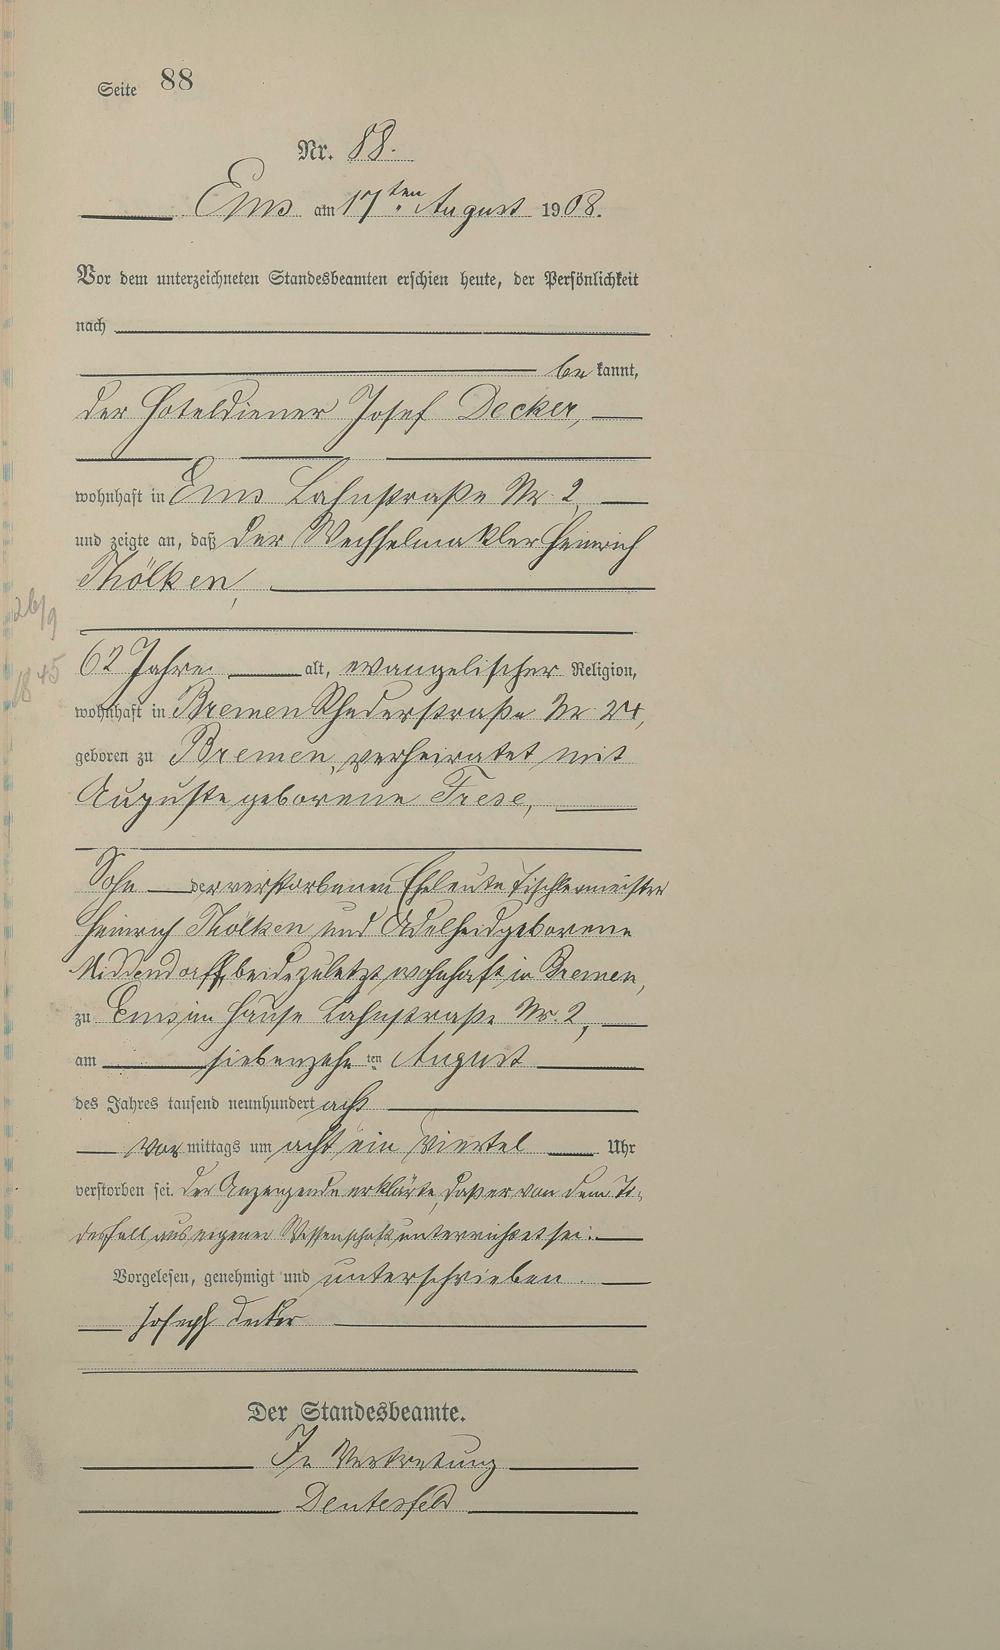 Seite 88
Nr. 88.
Ems am 17ten August 1908.
Vor dem unterzeichneten Standesbeamten erschien heute, der Persönlichkeit
nach
bekannt,
der Hoteldiener Josef Decker,
wohnhaft in Ems Lahnstraße Nr. 2
und zeigte an, daß der Wechselmakler Heinrich
Thölken,
26/9
62 Jahre alt, evangelischer Religion,
1845
wohnhaft in Bremen Rhederstraße Nr. 24,
geboren zu Bremen, verheiratet mit
Auguste geborene Frese,
Sohn der verstorbenen Eheleute Tischlermeister
Heinrich Thölken und Adelheid geborene
Middendorff, beide zuletzt wohnhaft in Bremen,
zu Ems im Hause Lahnstraße Nr. 2,
am siebenzehnten August
des Jahres tausend neunhundert acht
Vormittags um acht ein viertel Uhr
verstorben sei. Der Anzeigende erklärte, daß er von dem To-
desfall aus eigener Wissenschaft unterrichtet sei.
Vorgelesen, genehmigt und unterschrieben.
Joseph Decker
Der Standesbeamte.
In Vertretung